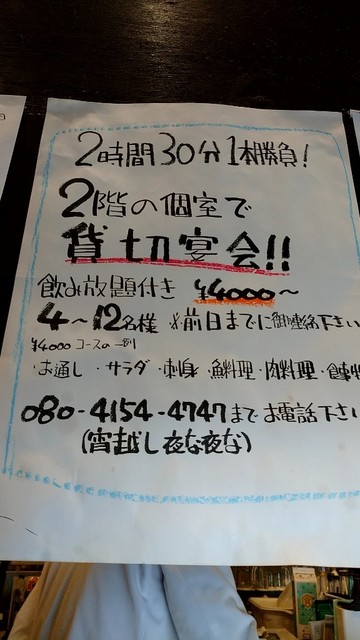 2時間30分1本勝負!
2階の個室で
貸切宴会!!
飲み放題付き ¥4000〜
4〜12名様 ※前日までに御連絡下さい
¥4000コースの一例
・お通し ・サラダ ・刺身 ・魚料理 ・肉料理 ・食事
080-4154-4747までお電話下さい
(宵越し夜な夜な)